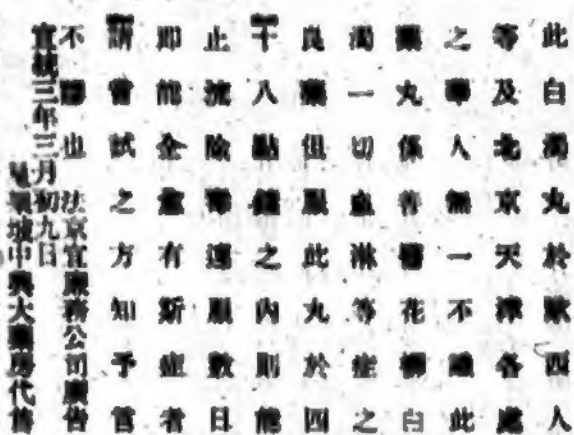 此白濁丸於歐西人
等及北京天津各處
之華人無一不識此
藥丸係專醫花柳白
濁一切血淋等症之
良藥但服此丸於四
十八點鐘之內則能
止流除濁連服數日
即能全愈有斯症者
請嘗試之方知予言
不謬也 法京宜藥務公司廣告
宣統三年三月初九日
星坡城中興大藥房代售